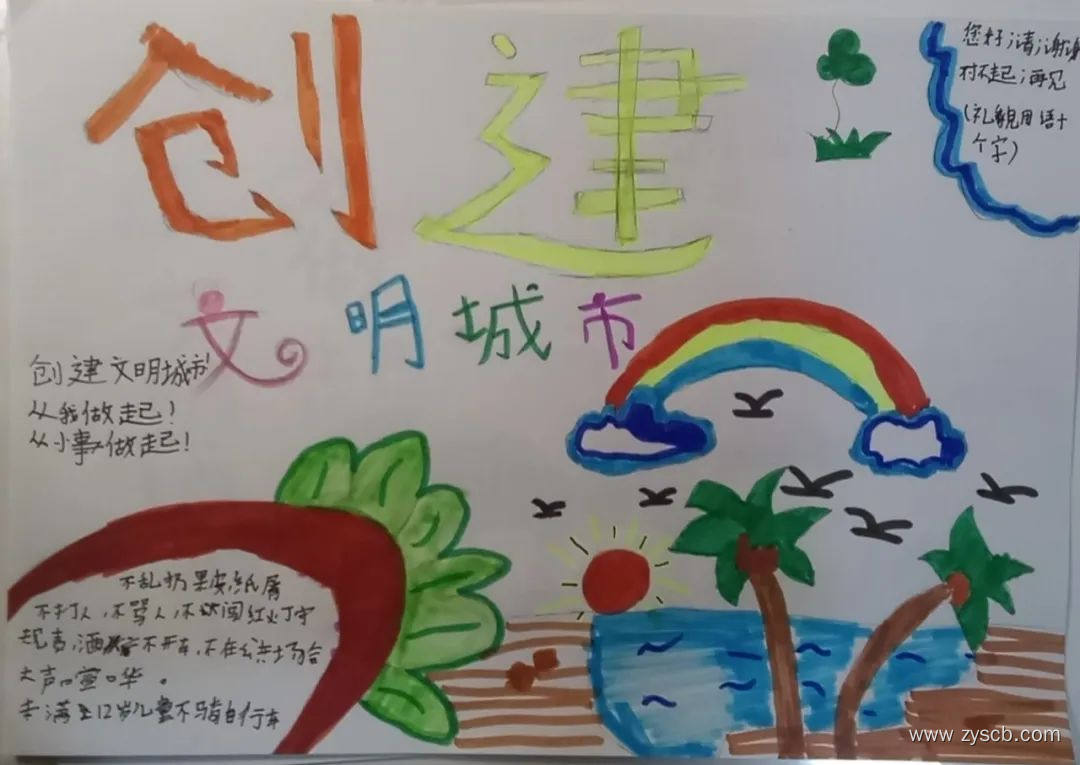 创建
文明城市
您好；请；谢谢
对不起；再见
（礼貌用语十
个字）
创建文明城市
从我做起！
从小事做起！
不乱扔果皮纸屑
不打人，不骂人，不闯红灯守
规矩，酒 不开车，不在公共场合
大声喧哗。
未满 12岁儿童不骑自行车
www.zyscb.com